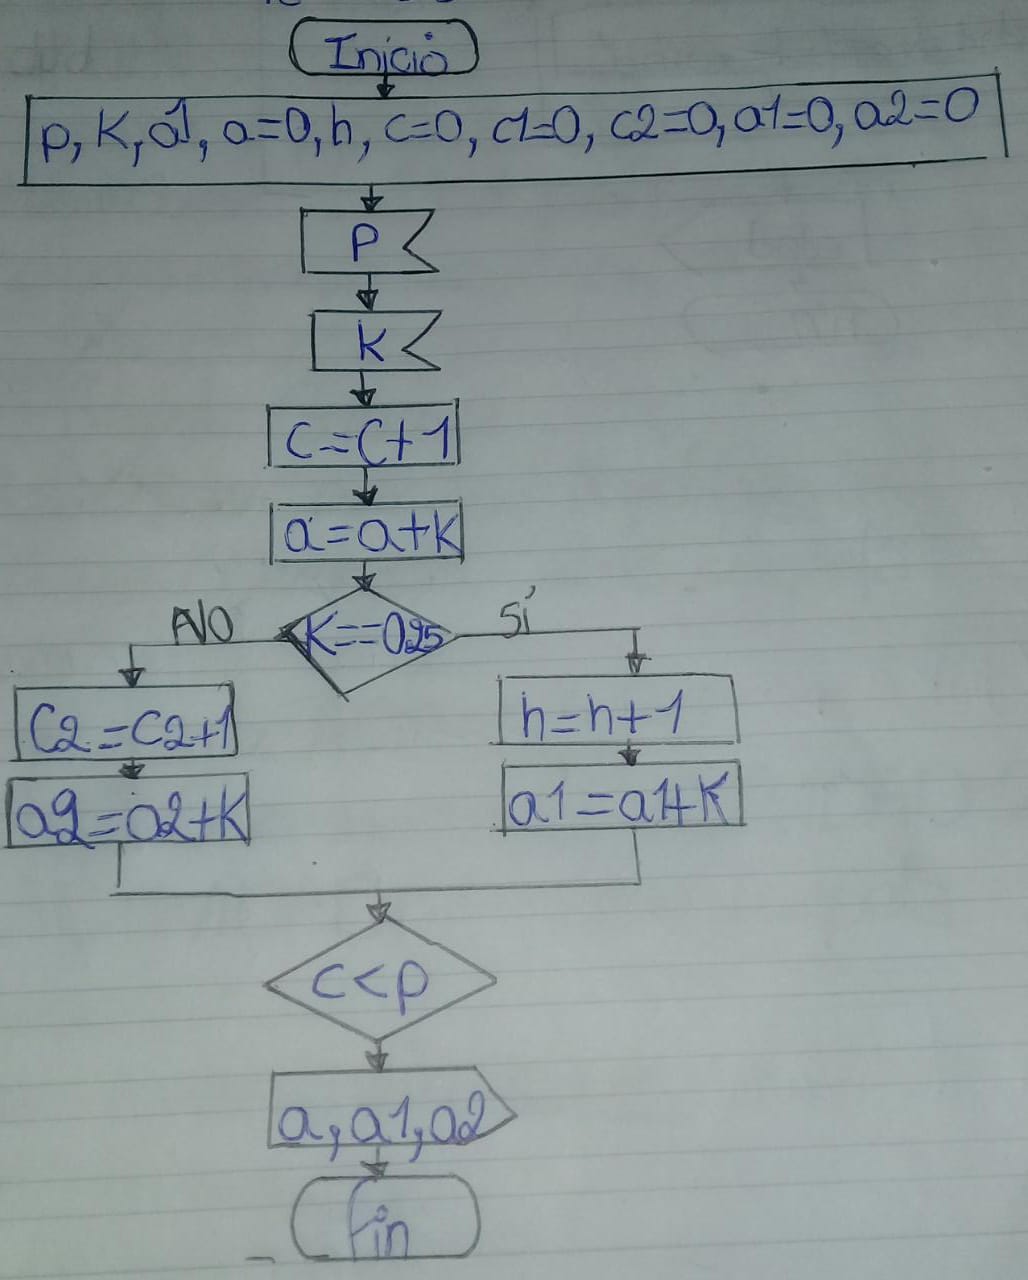 Inicio
p, K, a1, a=0, h, c=0, c1=0, c2=0, a1=0, a2=0
P
K
C=C+1
a=a+K
K==0.25
NO
Sí
C2=C2+1
h=h+1
a2=a2+K
a1=a1+K
c<p
a, a1, a2
Fin